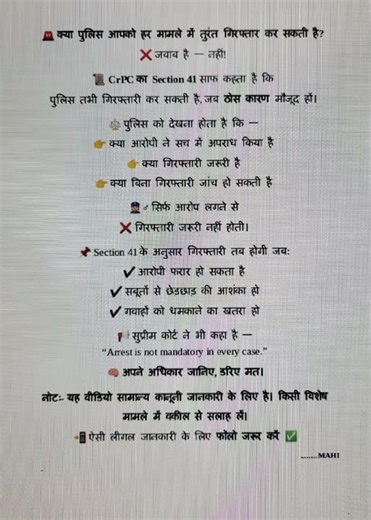 🚨 क्या पुलिस आपको हर मामले में तुरंत गिरफ्तार कर सकती है?
❌ जवाब है — नहीं!
📜 CrPC का Section 41 साफ कहता है कि
पुलिस तभी गिरफ्तारी कर सकती है, जब ठोस कारण मौजूद हों।
⚖️ पुलिस को देखना होता है कि —
👉 क्या आरोपी ने सच में अपराध किया है
👉 क्या गिरफ्तारी जरूरी है
👉 क्या बिना गिरफ्तारी जांच हो सकती है
👮♂ सिर्फ आरोप लगने से
❌ गिरफ्तारी जरूरी नहीं होती।
📌 Section 41 के अनुसार गिरफ्तारी तब होगी जब:
✔ आरोपी फरार हो सकता है
✔ सबूतों से छेड़छाड़ की आशंका हो
✔ गवाहों को धमकाने का खतरा हो
📢 सुप्रीम कोर्ट ने भी कहा है —
“Arrest is not mandatory in every case.”
🧠 अपने अधिकार जानिए, डरिए मत।
नोटः- यह वीडियो सामान्य कानूनी जानकारी के लिए है। किसी विशेष
मामले में वकील से सलाह लें।
📲 ऐसी लीगल जानकारी के लिए फॉलो जरूर करें ✅
.........MAHI